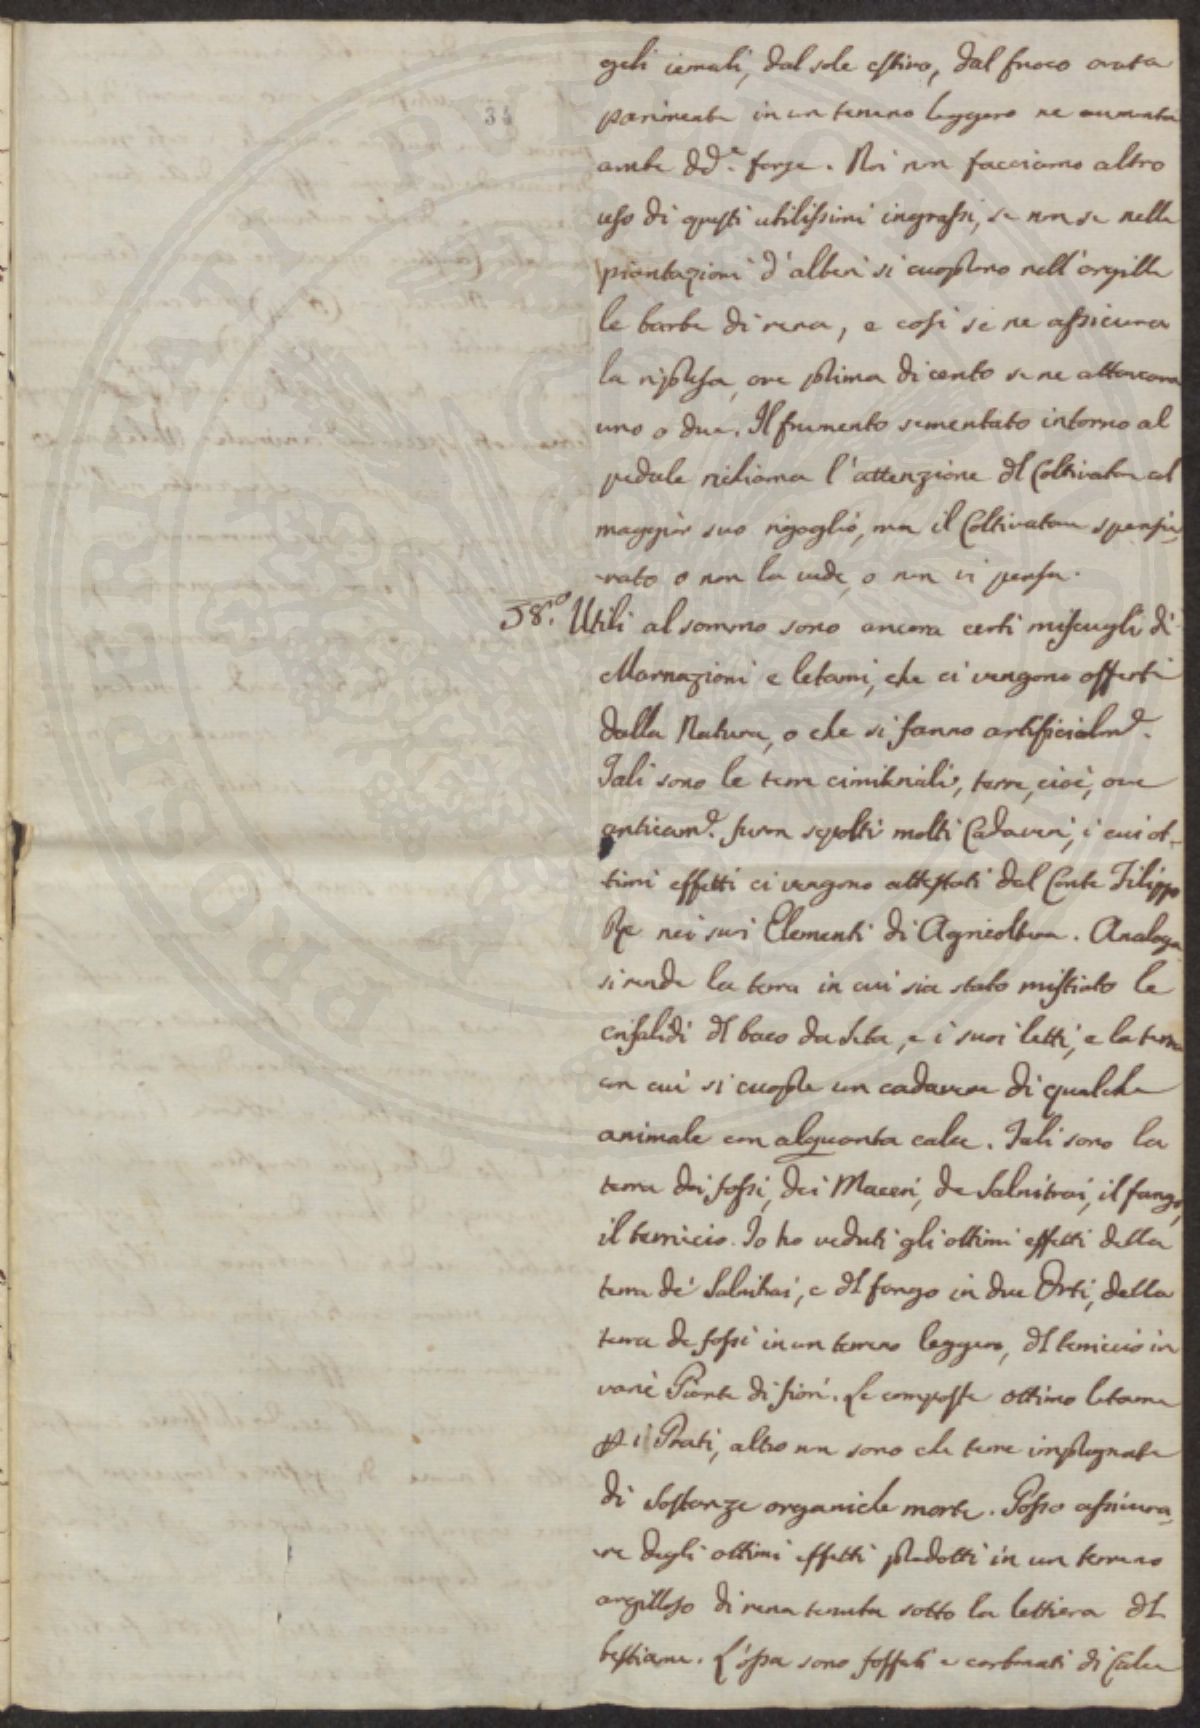 34
geli iemali, dal sole estivo, dal fuoco
parimente in un terreno leggero ne aumenta
ambe dde. forze. Noi non facciamo altro
uso di questi utilissimi ingrassi, se non se nelle
piantazioni d'alberi si cuoprono nell'argilla
le barbe di rena, e così se ne assicura
la ripresa, ove prima di cento se ne attaccava
uno o due. Il frumento sementato intorno al
pedale richiama l'attenzione del Coltivatore al
maggior suo rigoglio, ma il Coltivatore spensie,
-rato o non la vede, o non vi pensa.
58.o Utili al sommo sono ancora certi miscugli di
Marnazioni e letami, che ci vengono offerti
dalla Natura, o che si fanno artificialme.
Tali sono le terre cimiteriali, terre, cioè, ove
anticame. furon sepolti molti Cadaveri, i cui ot-
timi effetti ci vengono attestati dal Conte Filippo
Re nei suoi Elementi di Agricoltura. Analoga
si rende la terra in cui sia stato mistiato le
crisalidi del baco da Seta, e i suoi letti, e la terra
con cui si cuopre un cadavere di qualche
animale con alquanta calce. Tali sono la
terra dei fossi, dei Maceri, de Salnitrai, il fango,
il terriccio. Io ho veduti gli ottimi effetti della
terra de' Salnitrai, e del fango in due Orti, della
terra de fossi in un terreno leggero, del terriccio in
varie Piante di fiori. Le composte ottimo letame
p i Prati, altro non sono che terre impregnate
di Sostanze organiche morte. Posso assicura,
-re degli ottimi effetti prodotti in un terreno
argilloso di rena tenuta sotto la lettiera del
bestiame. L'ossa sono fosfati e carbonati di Calce